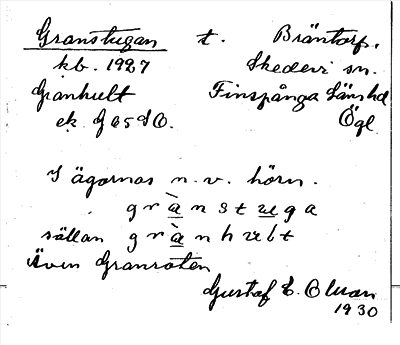 Granstugan t. Bräntorp,
kb. 1927 Skedevi sn.
Granhult Finspånga läns hd
ek. G 65 SO. Ögl.
I ägornas n.v. hörn.
grànstuga
sällan grànhult
Även Granroten
Gustaf E. Olsson
1930